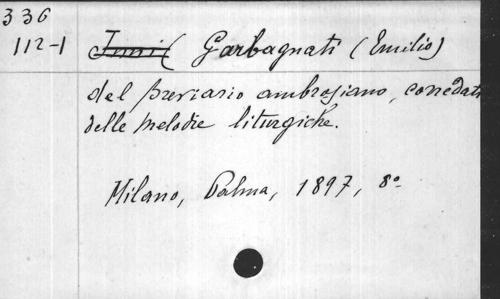 336
112-1 Inni Garbagnati (Emilio)
del breviario ambrosiano, corredati
delle melodie liturgiche.
Milano, Palma, 1897, 8º